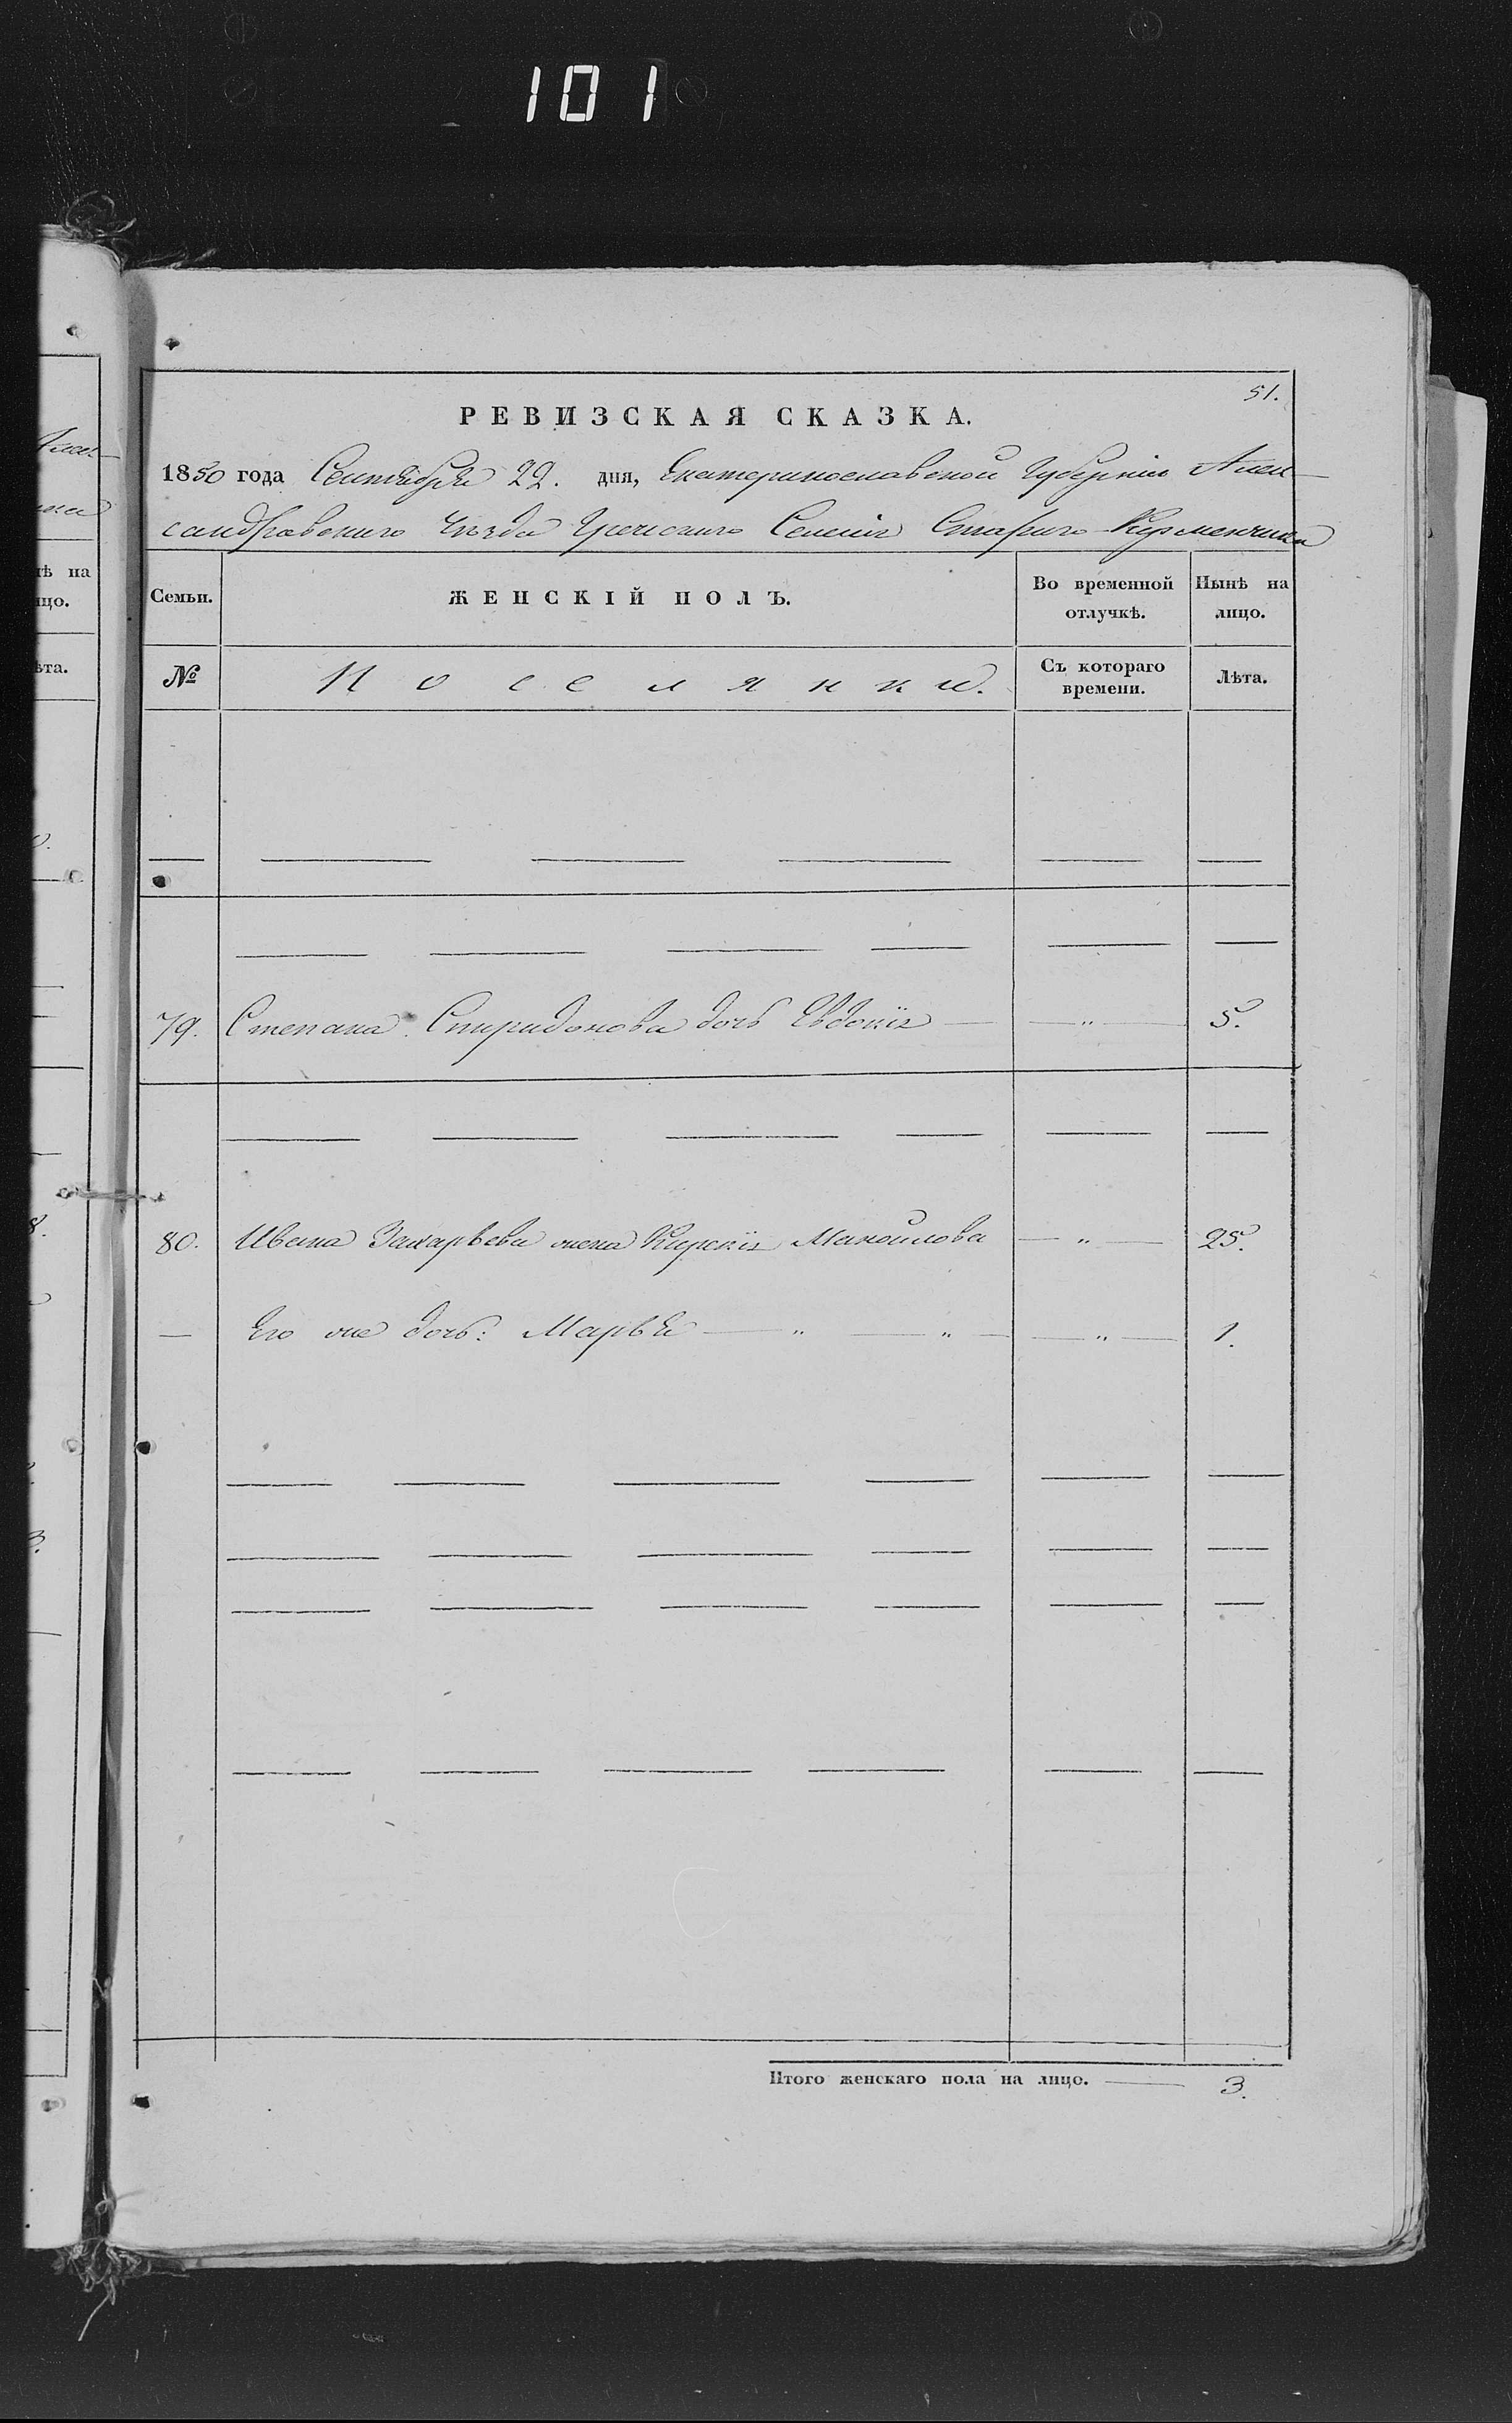 101
51.
РЕВИЗСКАЯ СКАЗКА.
1850 года Сентября 22. дня, Екатеринославской Губерніи Алек-
сандровскаго Уѣзда Греческаго Селенія Стараго Керменчика
Семьи. ЖЕНСКІЙ ПОЛЪ. Во временной отлучкѣ. Нынѣ на лицо.
№ Поселянки. Съ котораго времени. Лѣта.
79. Степана Спиридонова дочь Евдокія — „ — 5.
80. Ивана Захарьева жена Кирекія Манойлова — „ — 25.
— Его же дочь: Марья — „ — „ — — „ — 1.
Итого женскаго пола на лицо. — 3.